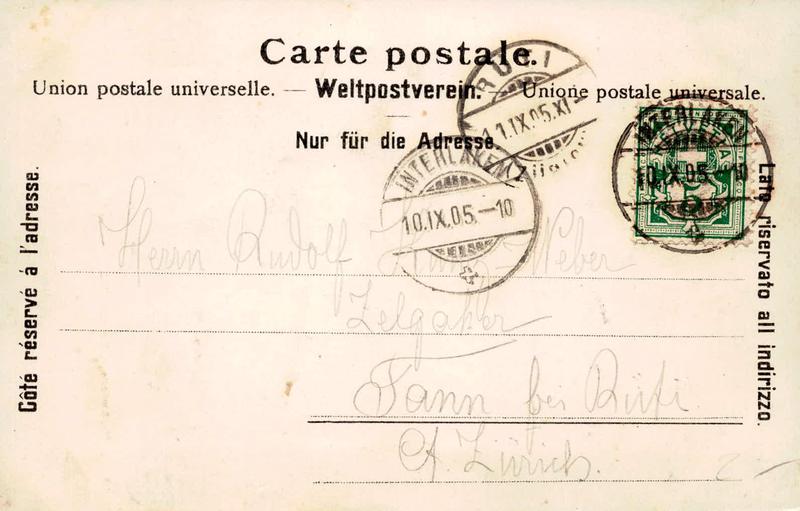 Carte postale.
Union postale universelle. — Weltpostverein. — Unione postale universale.
Nur für die Adresse.
Côté réservé à l'adresse.
Lato riservato all indirizzo.
RÜTI
11.IX.05.XI
INTERLAKEN
10.IX.05.—10
INTERLAKEN
10.IX.05.—10
Herrn Rudolf -Weber
Tann bei Rüti
Ct. Zürich.